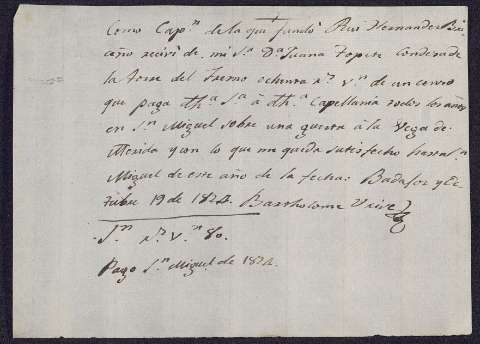 Como Cap.n de la que fundó Rui Hernandez
caño recivi de mi S.a D.a Juana Topete Condesa de
la torre del Fresno ochenta r.s v.n de un censo
que paga dh.a S.a à dh.a Capellania todos los años
en S.n Miguel sobre una huerta à la Vega de
Merida y con lo que me queda satisfecho hasta S.n
Miguel de este año de la fecha: Badajoz y Oc
tubre 19 de 1824. Bartholome
S.n r.s v.n 80.
Pago S.n Miguel de 1824.